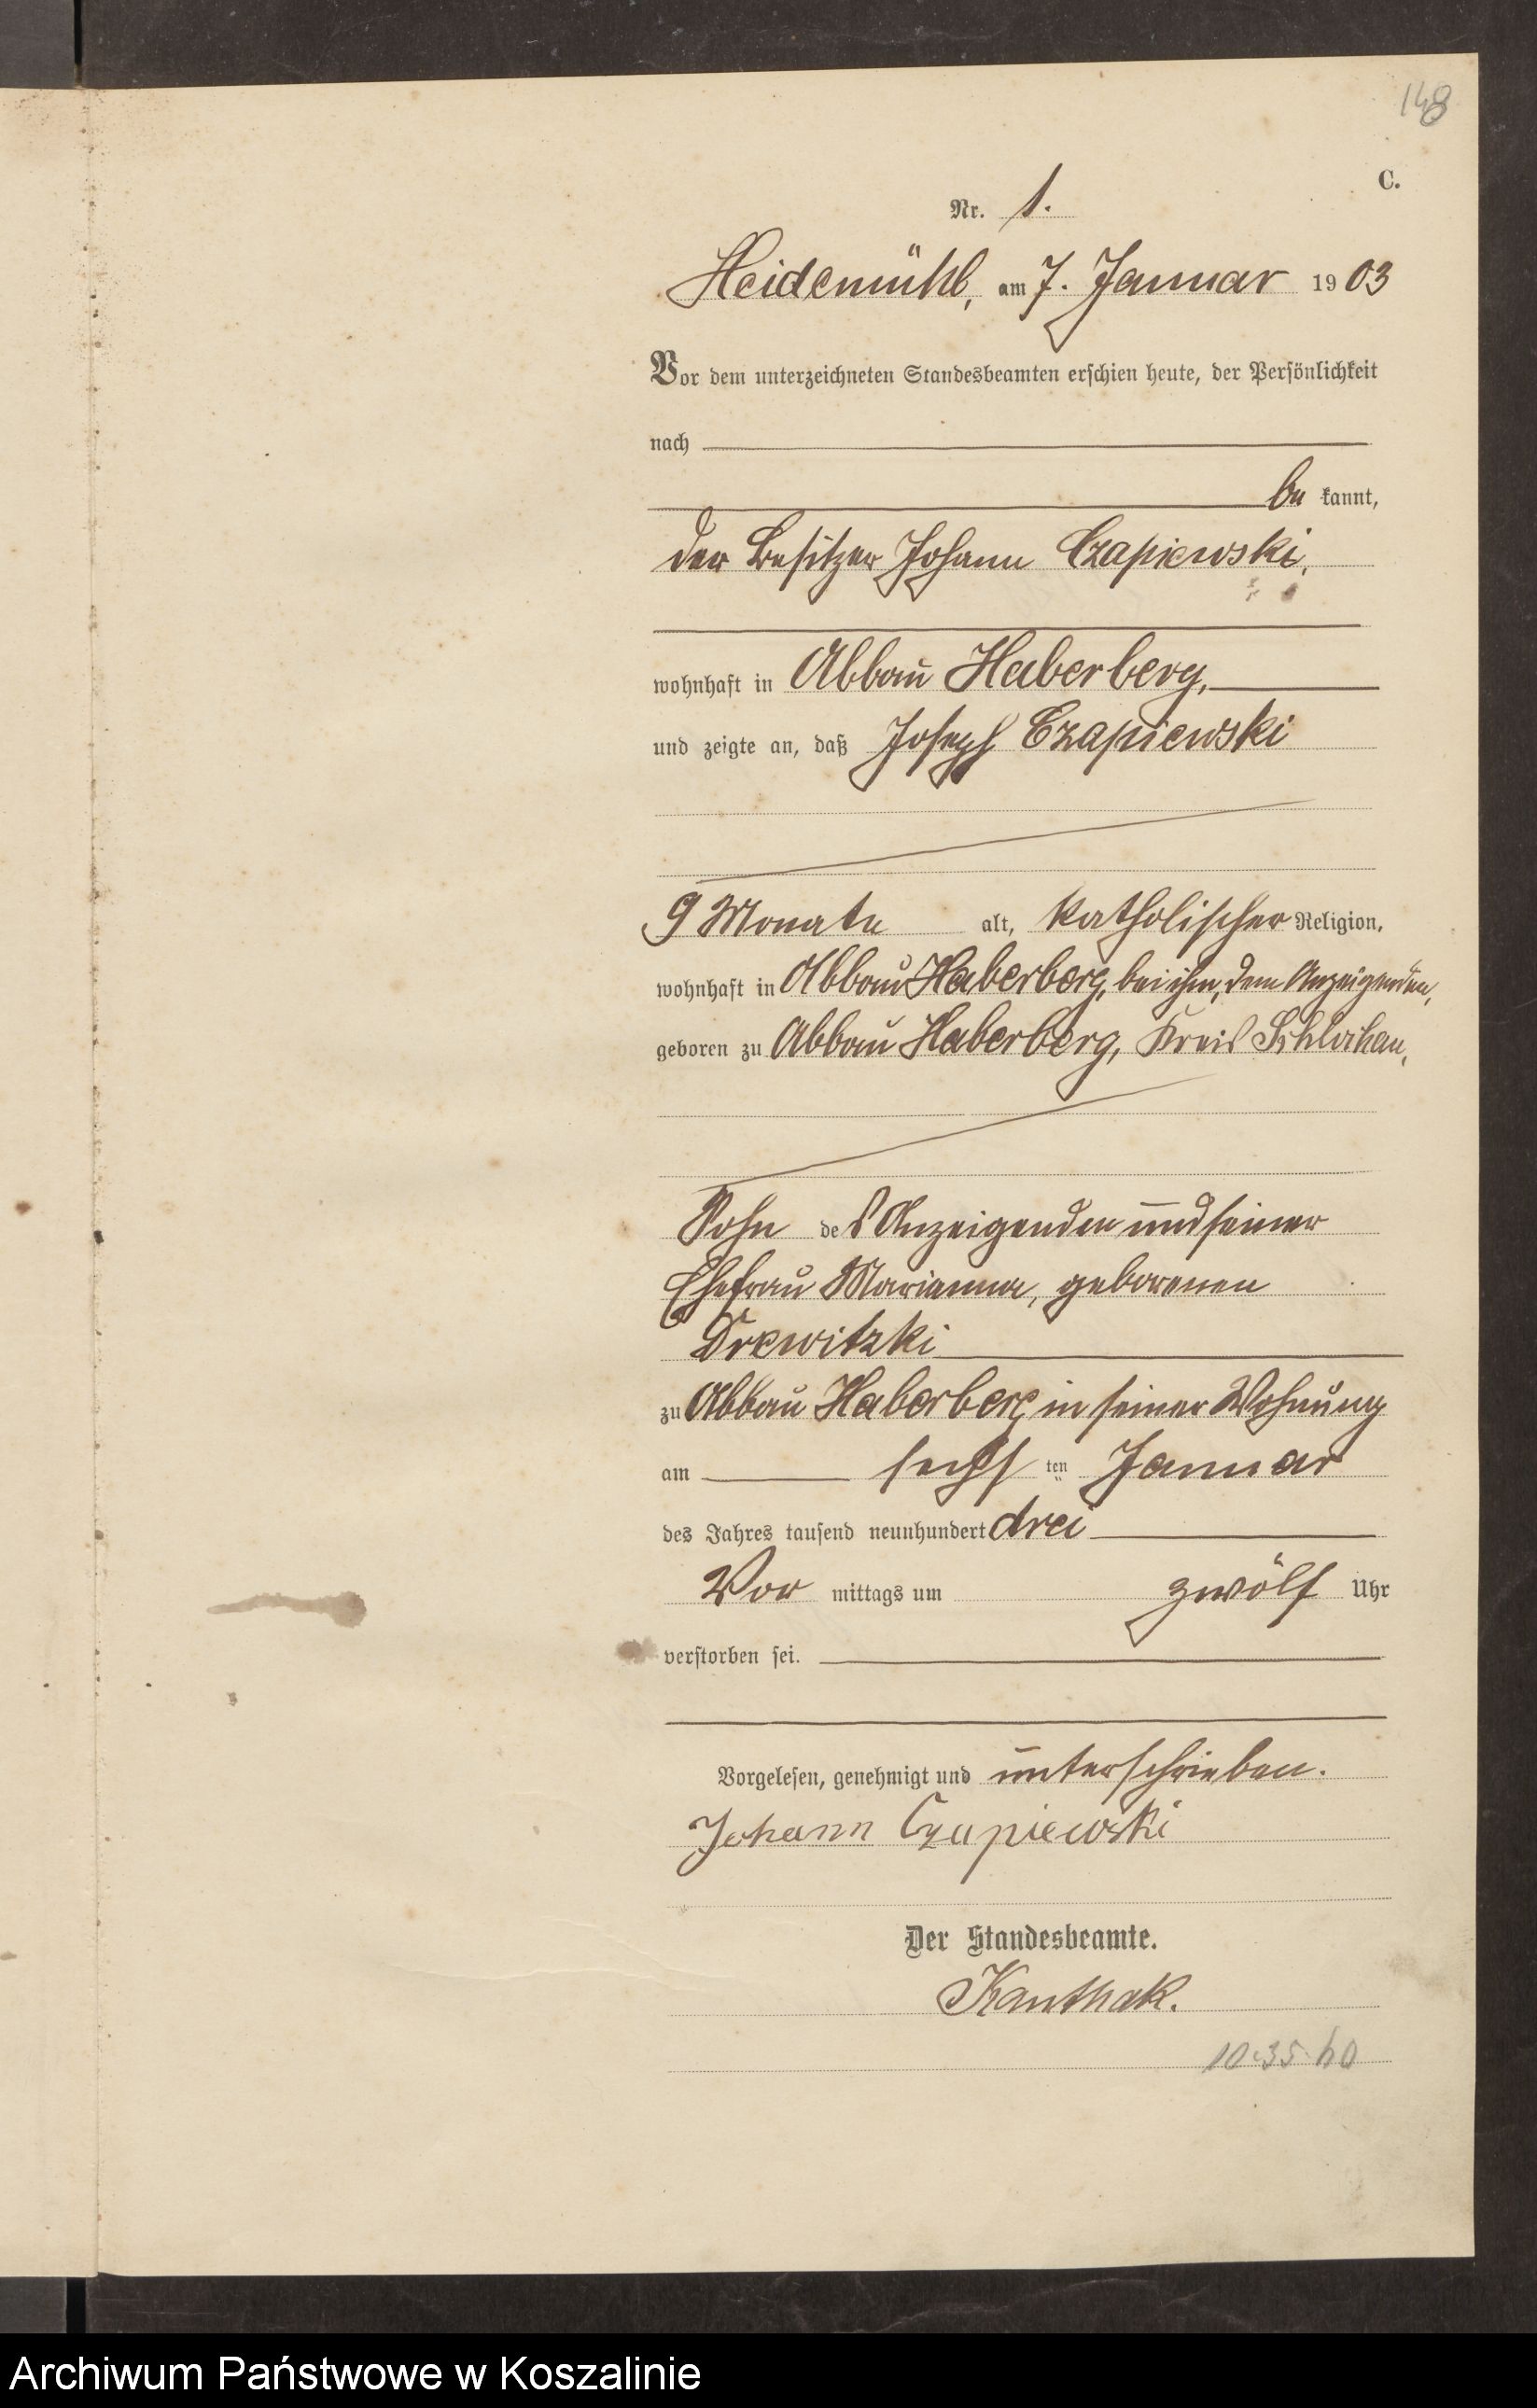 148
C.
Nr. 1.
Heidemühl, am 7. Januar 1903
Vor dem unterzeichneten Standesbeamten erschien heute, der Persönlichkeit
nach
be kannt,
der Besitzer Johann Czapiewski,
wohnhaft in Abbau Haberberg,
und zeigte an, daß Joseph Czapiewski
9 Monate alt, katholischer Religion,
wohnhaft in Abbau Haberberg, bei ihm, dem Anzeigenden,
geboren zu Abbau Haberberg, Kreis Schlochau,
Sohn des Anzeigenden und seiner
Ehefrau Marianna, geborenen
Drewitzki
zu Abbau Haberberg in seiner Wohnung
am sechsten Januar
des Jahres tausend neunhundert drei
Vor mittags um zwölf Uhr
verstorben sei.
Vorgelesen, genehmigt und unterschrieben.
Johann Czapiewski
Der Standesbeamte.
Kanthak.
Archiwum Państwowe w Koszalinie